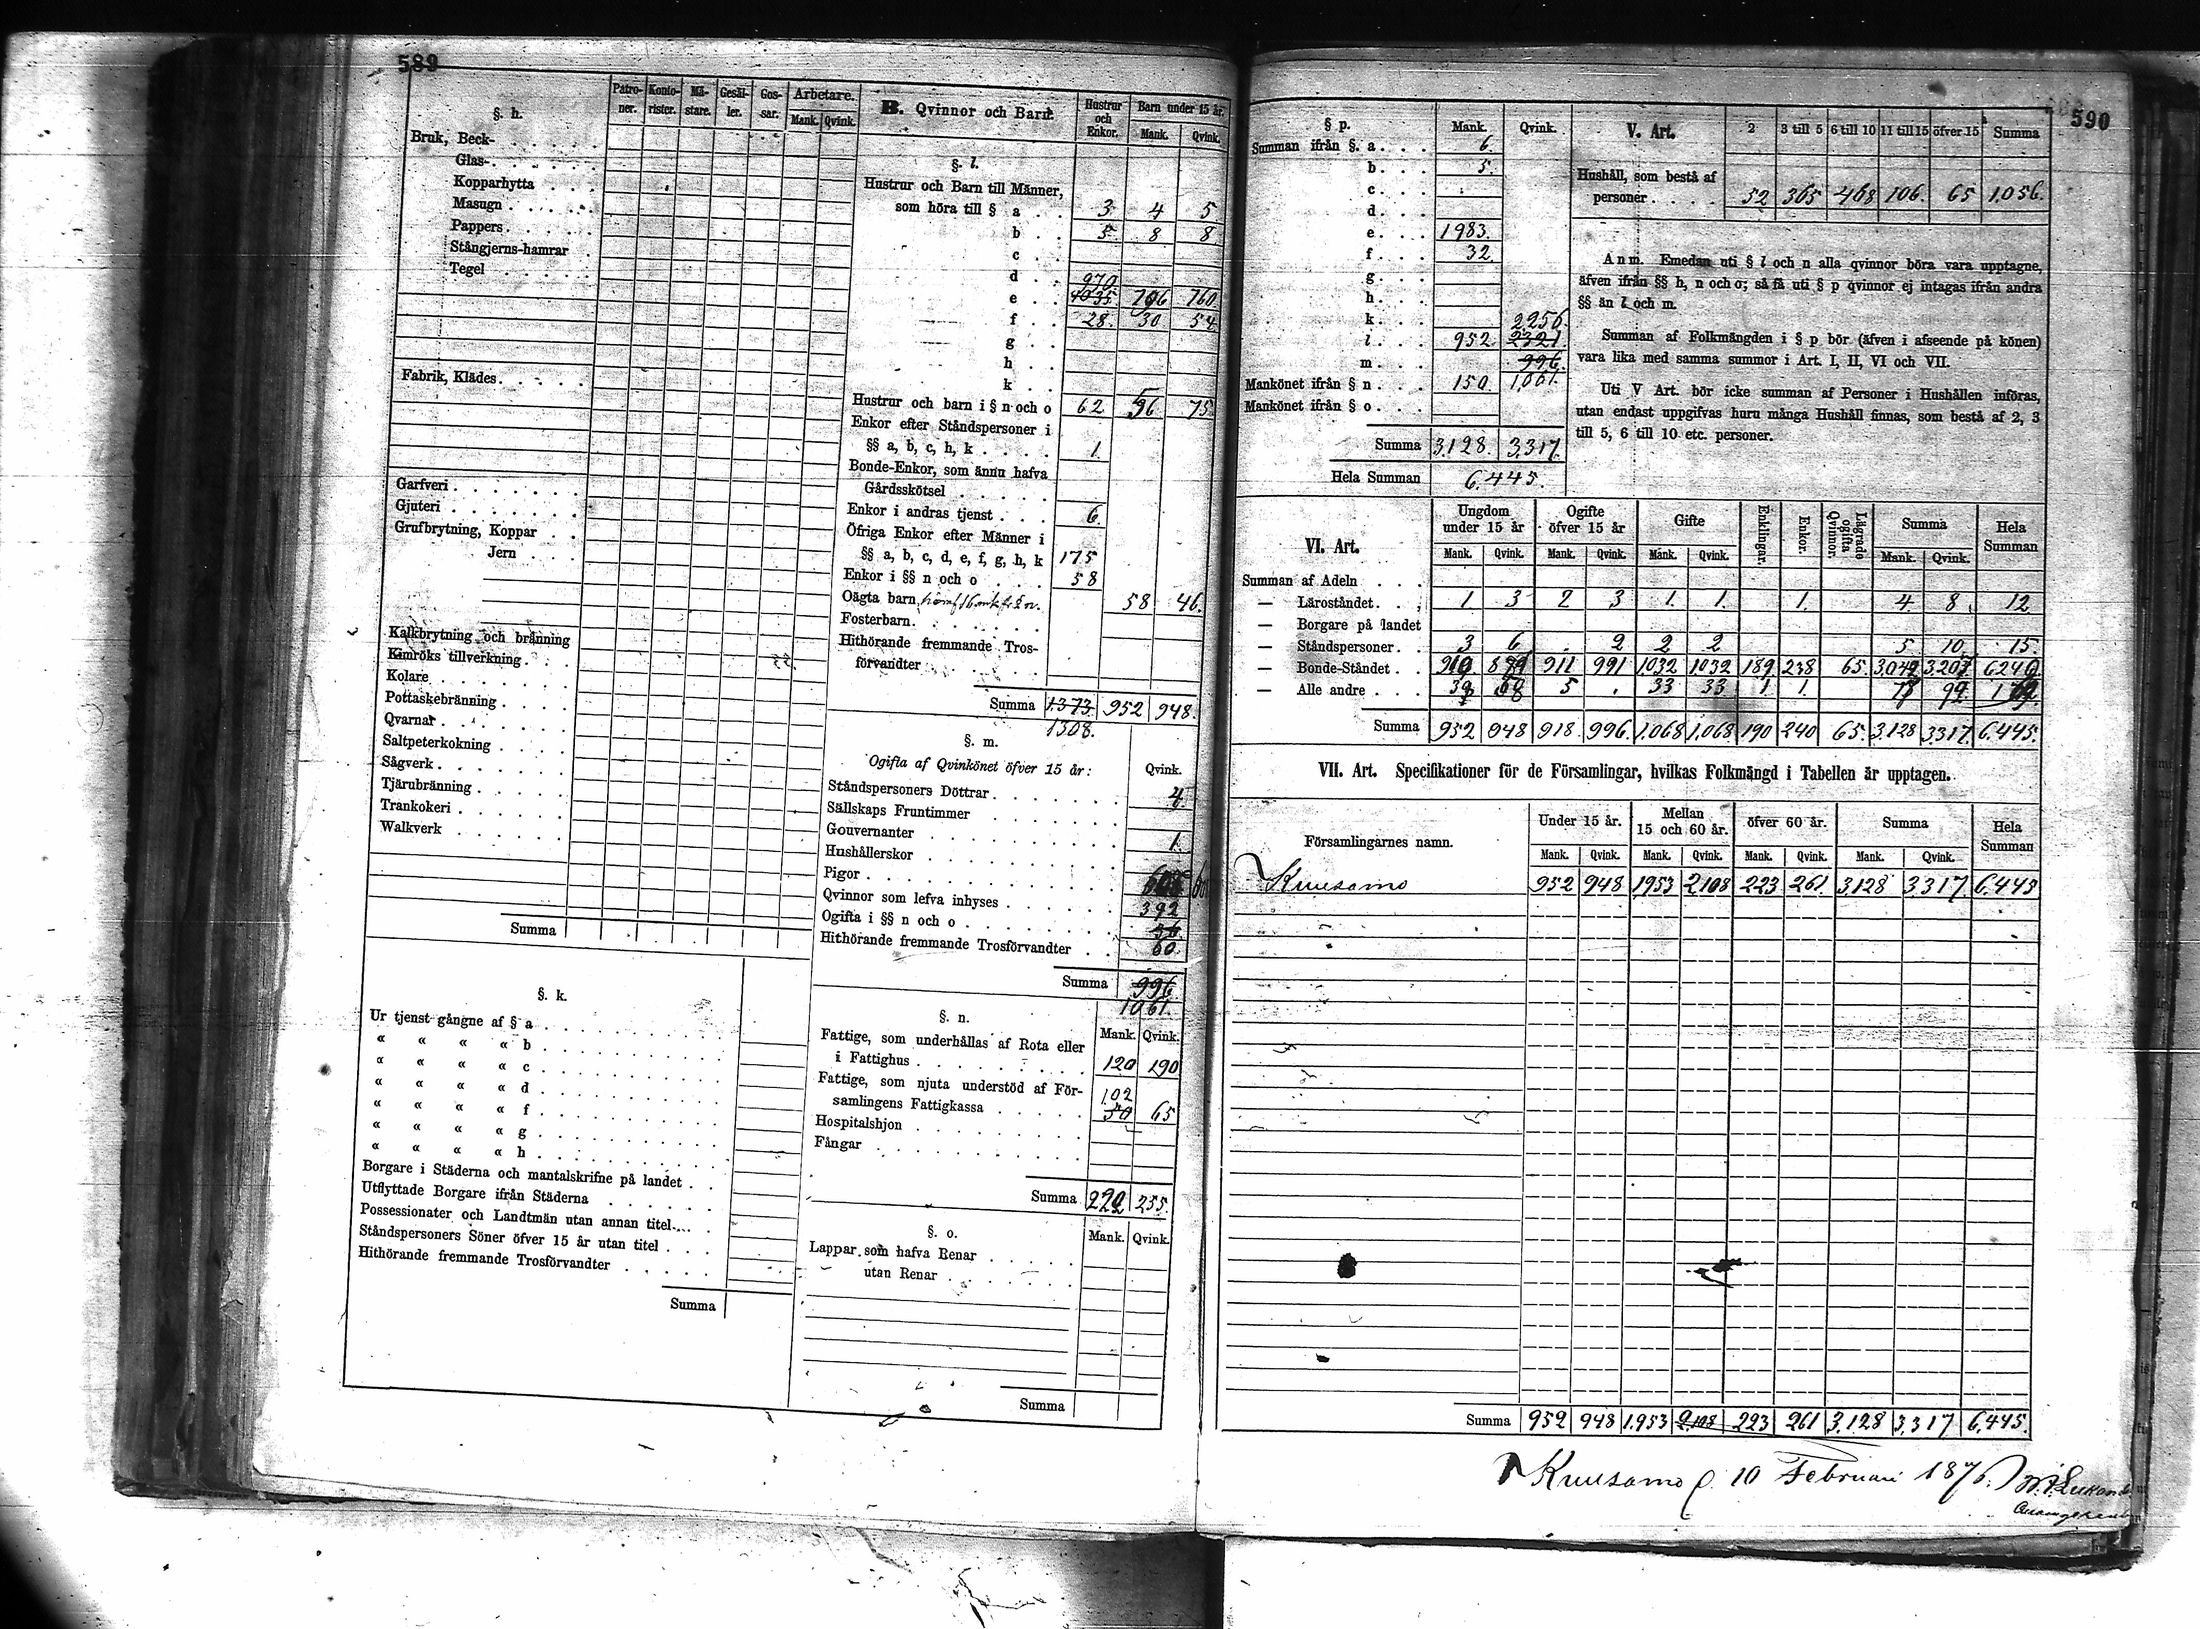 589
§. h.
Patro-ner. Konto-rister. Mä-stare. Gesäl-ler. Gos-sar. Arbetare. Mank. Qvink.
Bruk, Beck-
Glas-
Kopparhytta
Masugn
Pappers
Stångjerns-hamrar
Tegel
Fabrik, Klädes
Garfveri
Gjuteri
Grufbrytning, Koppar
Jern
Kalkbrytning och bränning
Kimröks tillverkning
Kolare
Pottaskebränning
Qvarnar
Saltpeterkokning
Sågverk
Tjärubränning
Trankokeri
Walkverk
Summa
§. k.
Ur tjenst gångne af § a
« « « « b
« « « « c
« « « « d
« « « « f
« « « « g
« « « « h
Borgare i Städerna och mantalskrifne på landet
Utflyttade Borgare ifrån Städerna
Possessionater och Landtmän utan annan titel
Ståndspersoners Söner öfver 15 år utan titel
Hithörande fremmande Trosförvandter
Summa
B. Qvinnor och Barn. Hustrur och Enkor. Barn under 15 år. Mank. Qvink.
§. l.
Hustrur och Barn till Männer,
som höra till § a 3 4 5
b 5 8 8
c
d 970
e 1035 706 760
f 28. 30 54
g
h
k
Hustrur och barn i § n och o 62 56 75
Enkor efter Ståndspersoner i
§§ a, b, c, h, k 1.
Bonde-Enkor, som ännu hafva
Gårdsskötsel
Enkor i andras tjenst 6
Öfriga Enkor efter Männer i
§§ a, b, c, d, e, f, g, h, k 175
Enkor i §§ n och o 58
Oägta barn 58 46.
Fosterbarn
Hithörande fremmande Tros-
förvandter
Summa 1373. 952 948.
1308.
§. m.
Ogifta af Qvinkönet öfver 15 år: Qvink.
Ståndspersoners Döttrar 4
Sällskaps Fruntimmer
Gouvernanter 1.
Hushållerskor
Pigor
Qvinnor som lefva inhyses 392
Ogifta i §§ n och o
Hithörande fremmande Trosförvandter 60.
Summa 996
1061.
§. n. Mank. Qvink.
Fattige, som underhållas af Rota eller
i Fattighus 120 190
Fattige, som njuta understöd af För- 102
samlingens Fattigkassa 50 65
Hospitalshjon
Fångar
Summa 222 255.
§. o. Mank. Qvink.
Lappar som hafva Renar
utan Renar
Summa
590
§ p. Mank. Qvink.
Summan ifrån §. a 6
b 5.
c
d
e 1983.
f 32
g
h
k 2256.
l 952. 2321.
m 996.
Mankönet ifrån § n 150. 1,061.
Mankönet ifrån § o
Summa 3,128. 3,317.
Hela Summan 6,445.
V. Art. 2 3 till 5 6 till 10 11 till 15 öfver 15 Summa
Hushåll, som bestå af
personer 52 365 468 106. 65 1,056.
Anm. Emedan uti § l och n alla qvinnor böra vara upptagne,
äfven ifrån §§ h, n och o; så få uti § p qvinnor ej intagas ifrån andra
§§ än l och m.
Summan af Folkmängden i § p bör (äfven i afseende på könen)
vara lika med samma summor i Art. I, II, VI och VII.
Uti V Art. bör icke summan af Personer i Hushållen införas,
utan endast uppgifvas huru många Hushåll finnas, som bestå af 2, 3
till 5, 6 till 10 etc. personer.
VI. Art. Ungdom under 15 år Ogifte öfver 15 år Gifte Enklingar. Enkor. Lägrade ogifta Qvinnor. Summa Hela Summan
Mank. Qvink. Mank. Qvink. Mank. Qvink. Mank. Qvink.
Summan af Adeln
— Läroståndet 1. 3 2 3 1. 1. 1. 4. 8. 12
— Borgare på landet
— Ståndspersoner 3 6 2 2 2 5. 10. 15.
— Bonde-Ståndet 911 991 1032 1032 189 238 65
— Alle andre 5 33 33 1 1.
Summa 952 948 918. 996. 1,068 1,068 190 240 65. 3,128 3,317. 6,445.
VII. Art. Specifikationer för de Församlingar, hvilkas Folkmängd i Tabellen är upptagen.
Församlingarnes namn. Under 15 år. Mellan 15 och 60 år. öfver 60 år. Summa Hela Summan
Mank. Qvink. Mank. Qvink. Mank. Qvink. Mank. Qvink.
Kuusamo 952 948 1953 2,108 223 261. 3,128 3,317. 6,445
Summa 952 948 1,953 2,108 223 261 3,128 3,317 6,445.
Kuusamo d. 10 Februari 1876.